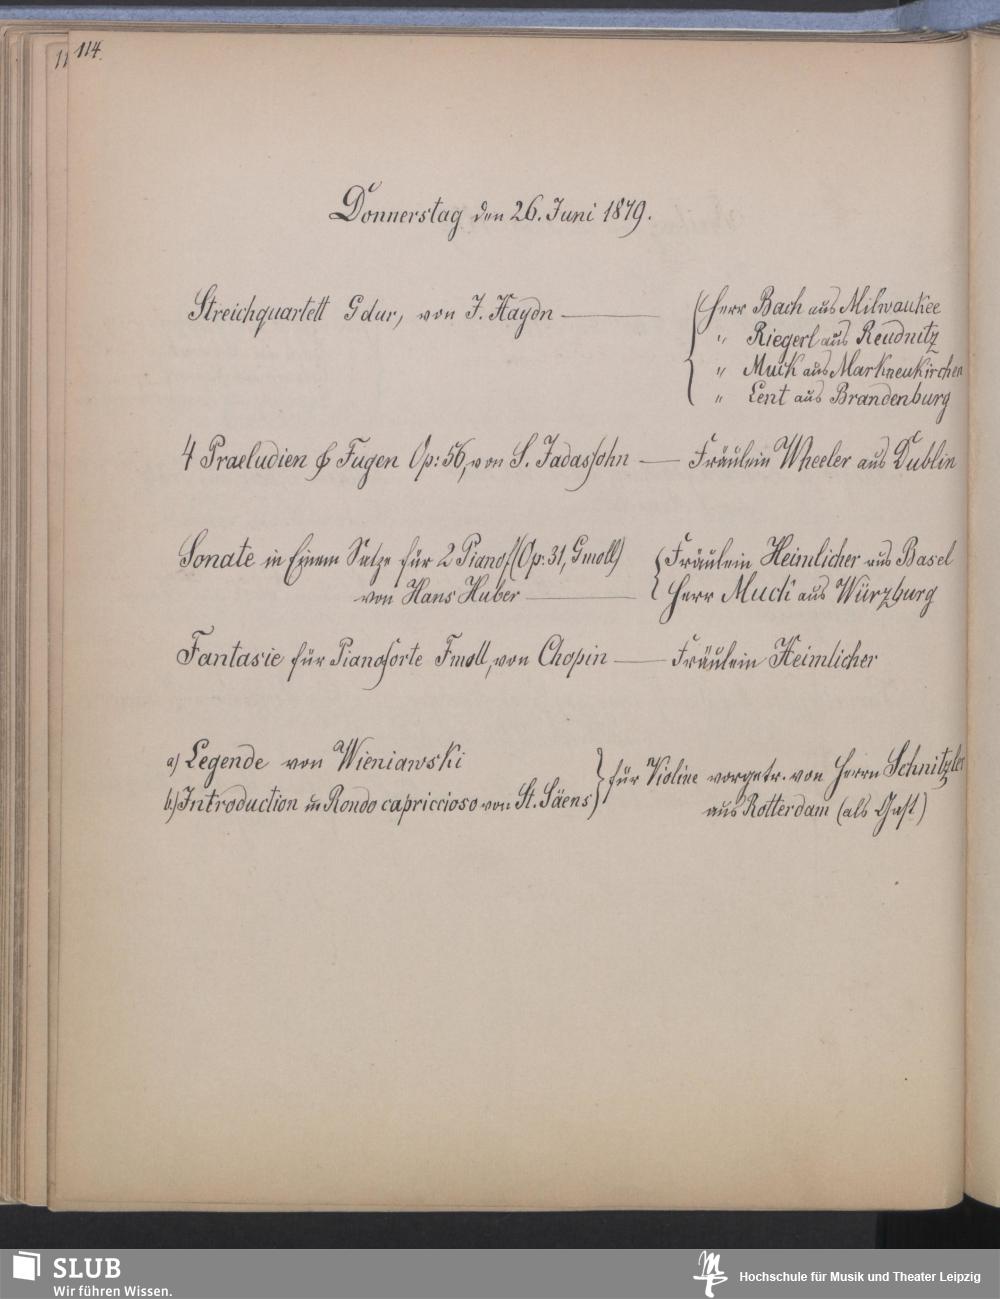 114.
11
Donnerstag den 26. Juni 1879.
Streichquartett Gdur, von J. Haydn — { Herr Bach aus Milwaukee
" Riegerl aus Reudnitz
" Muck aus Markneukirchen
" Lent aus Brandenburg
4 Praeludien & Fugen Op: 56, von S. Jadassohn — Fräulein Wheeler aus Dublin
Sonate in Einem Satze für 2 Pianof. (Op: 31, Gmoll) { Fräulein Heimlicher aus Basel
von Hans Huber — Herr Muck aus Würzburg
Fantasie für Pianoforte Fmoll, von Chopin — Fräulein Heimlicher
a) Legende von Wieniawski } für Violine vorgetr. von Herrn Schnitzler
b) Introduction u Rondo capriccioso von St. Säens } aus Rotterdam (als Gast)
SLUB
Wir führen Wissen.
Hochschule für Musik und Theater Leipzig